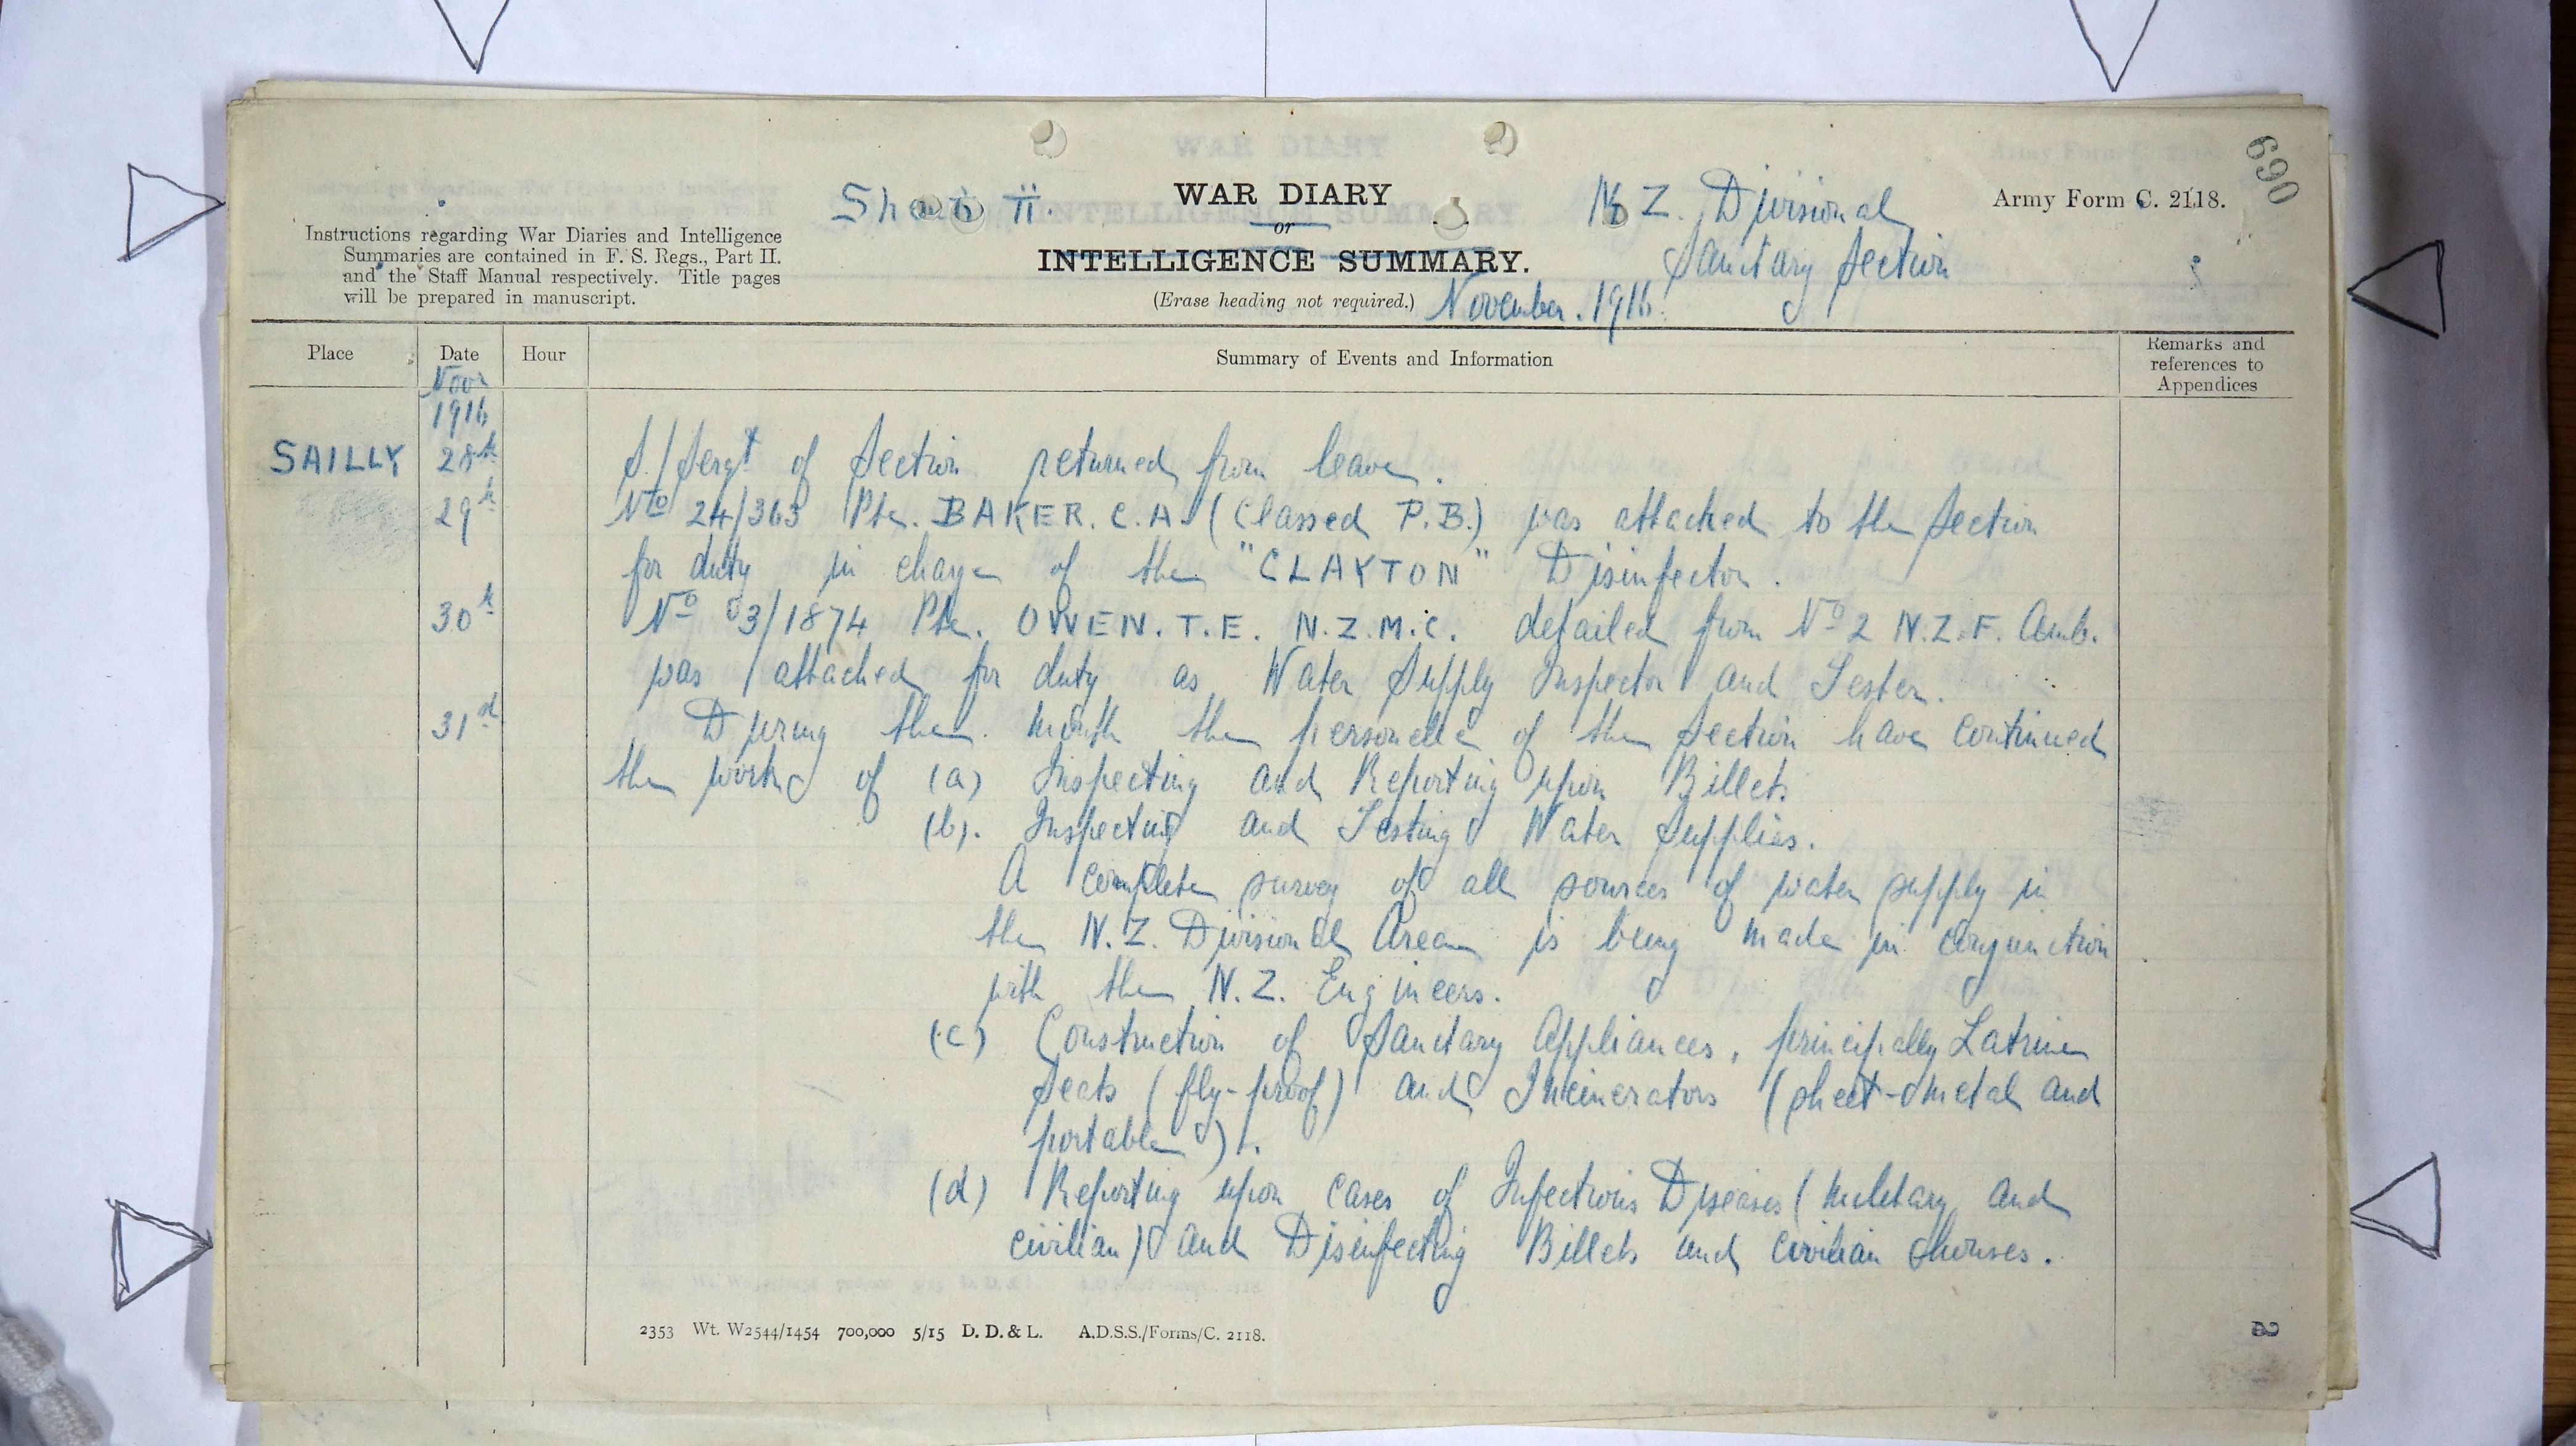 690
Sheet ii.
WAR DIARY
or
INTELLIGENCE SUMMARY.
(Erase heading not required.)
November. 1916.
N.Z. Divisional
Sanitary Section
Army Form C. 2118.
Instructions regarding War Diaries and Intelligence
Summaries are contained in F. S. Regs., Part II.
and the Staff Manual respectively. Title pages
will be prepared in manuscript.
Place Date Hour Summary of Events and Information Remarks and references to Appendices
Novr
1916
SAILLY 28th S./Sergt of Section returned from leave.
29th No 24/363 Pte. BAKER. C.A. (Classed P.B.) was attached to the Section
for duty in charge of the "CLAYTON" Disinfector.
30th No 3/1874 Pte. OWEN. T.E. N.Z.M.C. detailed from No 2 N.Z.F. Amb.
was attached for duty as Water Supply Inspector and Tester.
31st During the month the personelle of the Section have continued
the work of (a) Inspecting and Reporting upon Billets
(b). Inspecting and Testing Water Supplies.
A complete survey of all sources of water supply in
the N.Z. Divisional Area is being made in conjunction
with the N.Z. Engineers.
(c) Construction of Sanitary Appliances, principally Latrine
Seats (fly-proof) and Incinerators (sheet-metal and
portable).
(d) Reporting upon cases of Infectious Diseases (military and
civilian) and Disinfecting Billets and civilian houses.
2353 Wt. W2544/1454 700,000 5/15 D. D. & L. A.D.S.S./Forms/C. 2118.